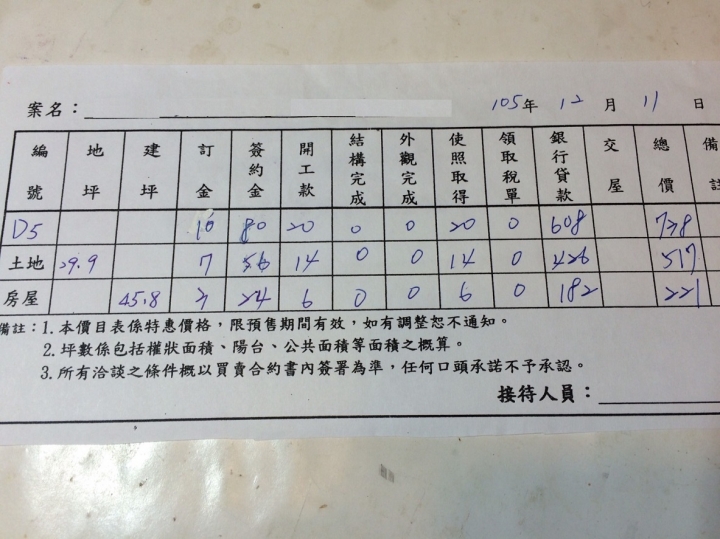 案名： 105年 12月 11日
編號 地坪 建坪 訂金 簽約金 開工款 結構完成 外觀完成 使照取得 領取稅單 銀行貸款 交屋 總價 備註
D5 10 80 20 0 0 20 0 608 738
土地 29.9 7 56 14 0 0 14 0 426 517
房屋 45.8 3 24 6 0 0 6 0 182 221
備註：1.本價目表係特惠價格，限預售期間有效，如有調整恕不通知。
2.坪數係包括權狀面積、陽台、公共面積等面積之概算。
3.所有洽談之條件概以買賣合約書內簽署為準，任何口頭承諾不予承認。
接待人員：